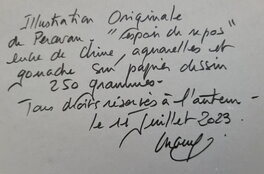 Illustration Originale
de Peravan - "espoir de repos"
encre de Chine, aquarelles et
gouache sur papier dessin
250 grammes -
Tous droits réservés à l'auteur -
le 11 Juillet 2023.